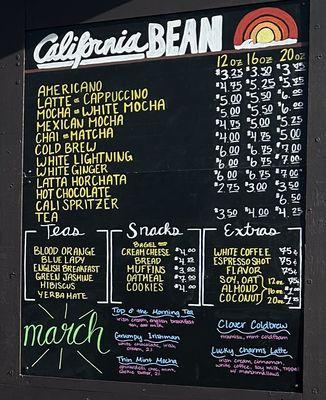 California BEAN
12oz 16oz 20oz
AMERICANO $3.25 $3.50 $3.75
LATTE = CAPPUCCINO $4.75 $5.25 $5.75
MOCHA = WHITE MOCHA $5.00 $5.50 $6.00
MEXICAN MOCHA $5.00 $5.50 $6.00
CHAI = MATCHA $4.75 $5.00
COLD BREW $4.00 $4.75 $5.00
WHITE LIGHTNING $6.00 $6.75 $7.00
WHITE GINGER $6.00 $6.75 $7.00
LATTA HORCHATA $6.00 $6.75 $7.00
HOT CHOCOLATE $2.75 $3.00 $3.50
CALI SPRITZER $6.50
TEA $3.50 $4.00 $4.25
Teas
BLOOD ORANGE
BLUE LADY
ENGLISH BREAKFAST
GREEN JASMINE
HIBISCUS
YERBA MATE
Snacks
BAGEL
CREAM CHEESE $4.00
BREAD
MUFFINS $3.00
OATMEAL
COOKIES $4.00
Extras
WHITE COFFEE 75¢
ESPRESSO SHOT 75¢
FLAVOR 75¢
SOY, OAT 12oz
ALMOND 16oz
COCONUT 20oz
march
Top o the Morning Tea
irish cream, english breakfast
tea, oat milk
Grumpy Irishman
white chocolate, irish
cream,
Thin Mint Mocha
ghirardelli, choc, mint
Clover Coldbrew
tiramisu, mint coldfoam
Lucky Charms Latte
irish cream, cinnamon,
white coffee, soy milk, topped
w/ marshmallows